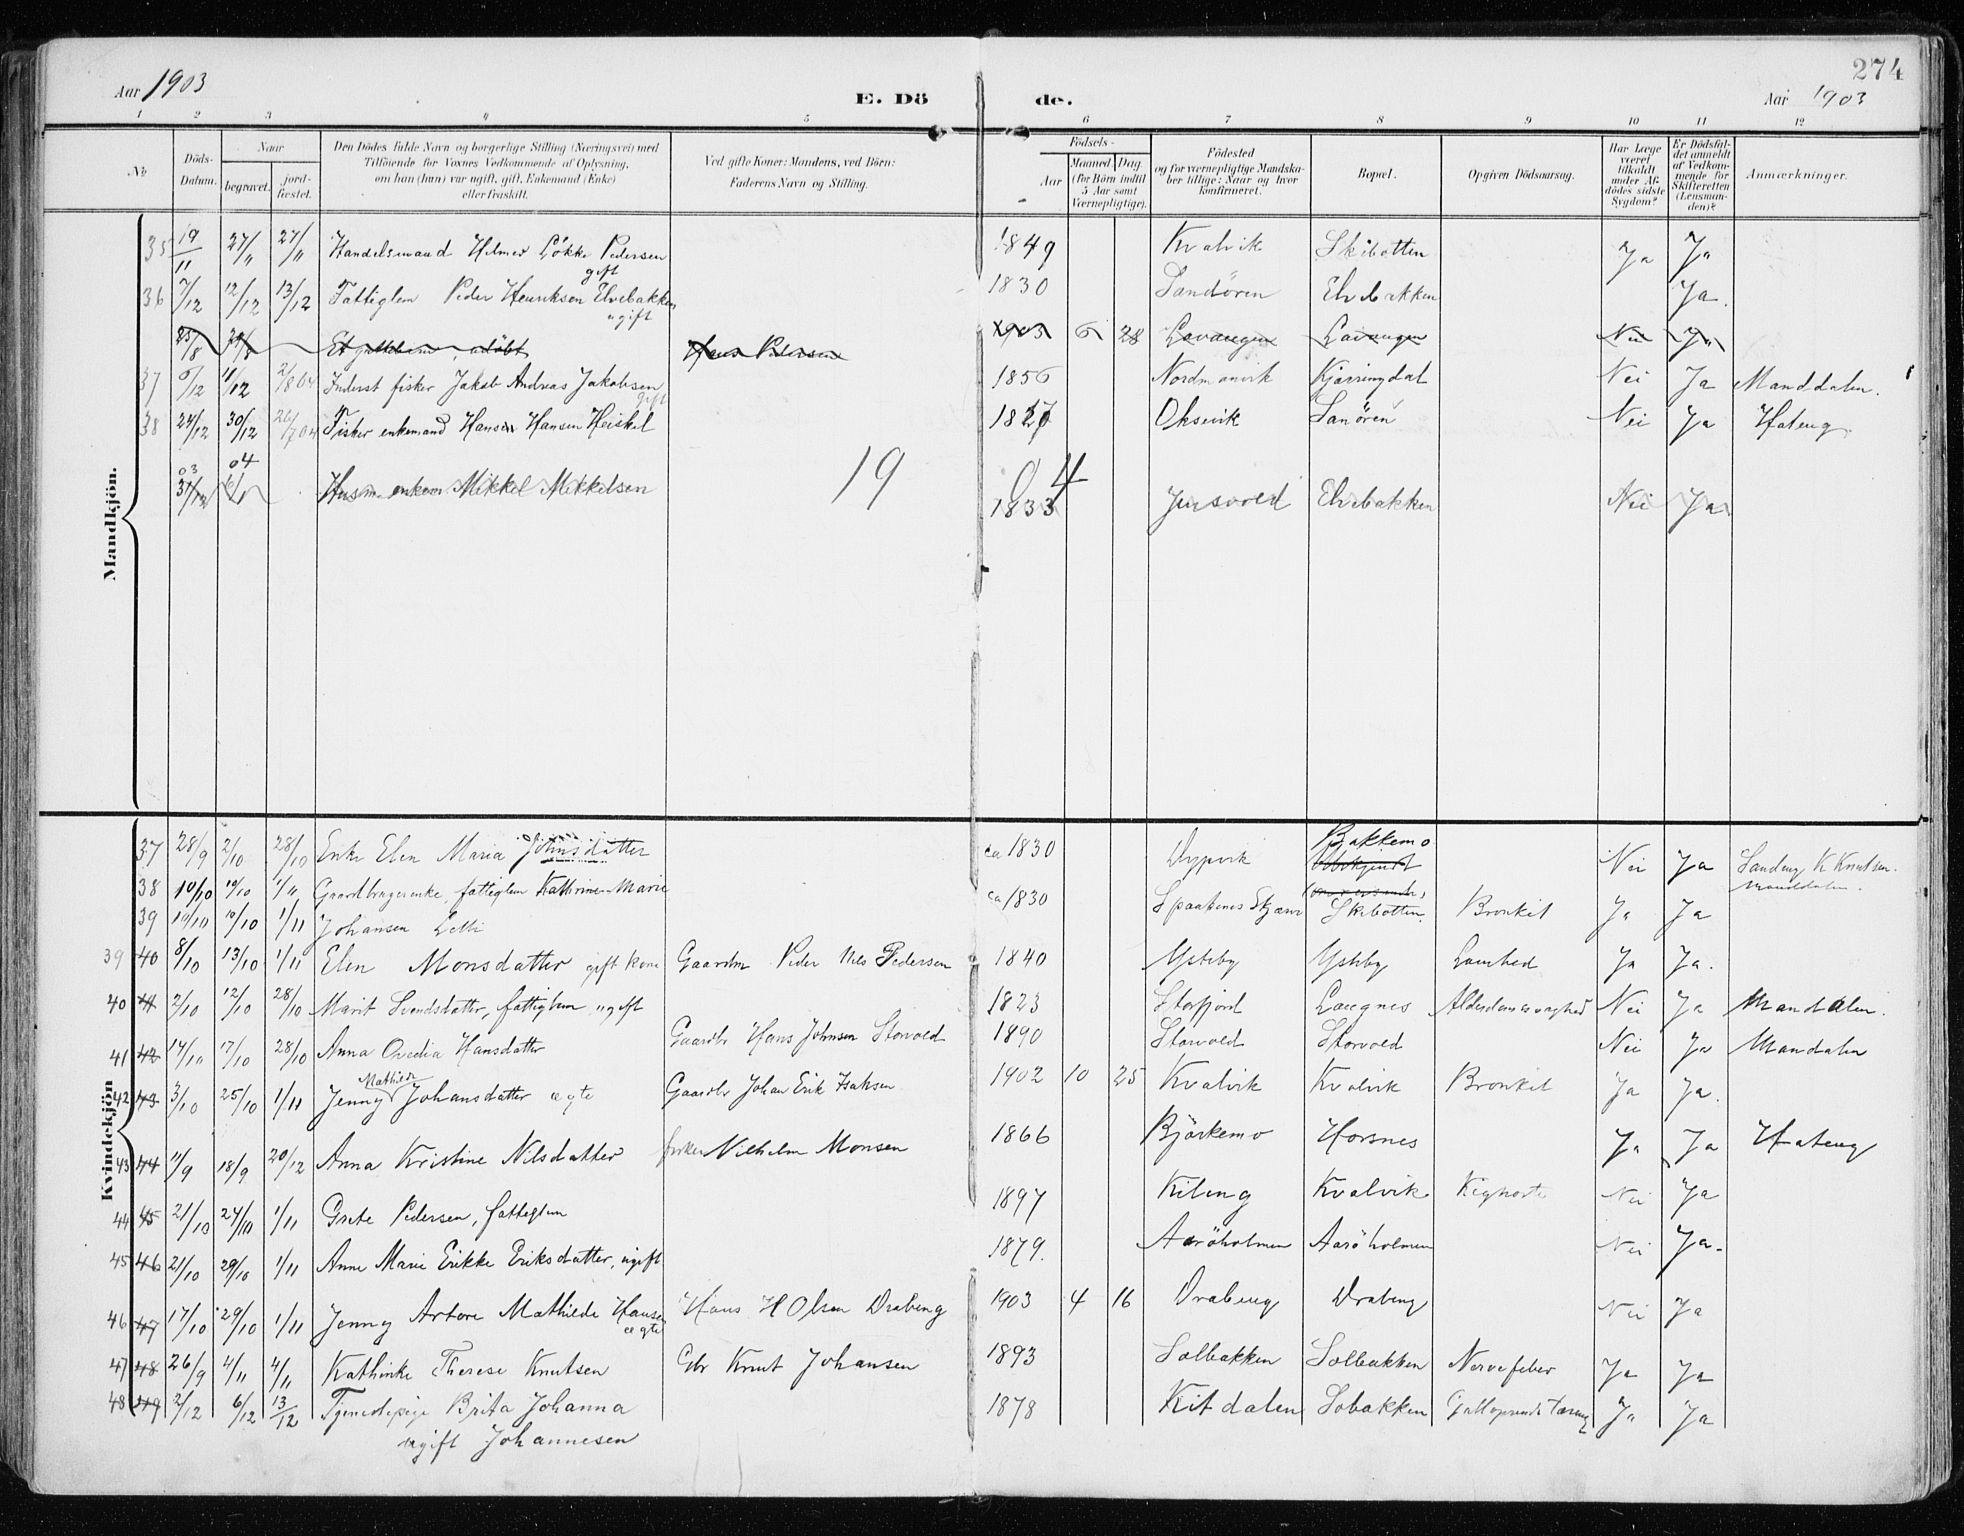 274
Aar 1903
E. Dö
de.
Aar 1903
1 2 3 4 5 6 7 8 9 10 11 12
No
Döds-Datum.
Naar
begravet.
jord-fæstet.
Den Dödes fulde Navn og borgerlige Stilling (Næringsvei) med
Tilföiende for Voxnes Vedkommende af Oplysning,
om han (hun) var ugift, gift, Enkemand (Enke)
eller fraskilt.
Ved gifte Koner: Mandens, ved Börn:
Faderens Navn og Stilling.
Födsels-
Aar
Maaned. Dag.
(for Börn indtil
5 Aar samt
Værnepligtige).
Födested
og for værnepligtige Mandska-
ber tillige: Naar og hvor
konfirmeret.
Bopæl.
Opgiven Dödsaarsag.
Har Læge
været
tilkaldt
under Af-
dödes sidste
Sygdom?
Er Dödsfal-
det anmeldt
af Vedkom-
mende for
Skifteretten
(Lensman-
den)?
Anmærkninger.
Mandkjön.
35 19/11 27/11 27/11 Handelsmand Hilmer Lökke Pedersen gift 1849 Kvalvik Skibotten Ja Ja
36 7/12 12/12 13/12 Fattiglem Peder Henriksen Elvebakken ugift 1830 Sandören Elvebakken Ja.
25/8 1903 6 28 Lavangen Lavangen Nei Ja
Hans Pedersen
37 6/12 11/12 2/8 04 Inderst fisker Jakob Andreas Jakobsen gift 1856 Nordmanvik Kjærringdal Nei Ja Manddalen.
38 24/12 30/12 26/7 04 Fisker enkemand Hans Hansen Heiskel 1827 Oksvik Sanören Nei Ja Hateng.
19 04
03 31/12 04 Husm. enkem Mikkel Mikkelsen 1833 Elvebakken Nei Ja
Kvindekjön
37 28/9 2/10 28/10 Enke Elen Maria Johnsdatter ca 1830 Dypvik Bakkemo Nei Ja Sandeng K Knutsen. Manddalen.
38 10/10 19/10 1/11 Gaardbrugerenke, fattiglem Kathrine Marie ca 1830 Skibotten. Bronkit Ja Ja
39 10/10 19/10 1/11 Johansen Letti
39 40 8/10 13/10 1/11 Elen Monsdatter gift kone Gaardm Peder Nils Pedersen 1840 Ysteby Ysteby Lamhed Ja Ja.
40 41 2/10 12/10 28/10 Marit Svendsdatter, fattiglem ugift 1823 Storfjord Langnes Alderdomssvaghed Nei Ja Mandalen.
41 42 14/10 17/10 28/10 Anna Ovedia Hansdatter Gaardbr Hans Johnsen Storvold 1890 Storvold Storvold Nei Ja Mandalen
42 43 3/10 25/10 1/11 Jenny Mathilde Johansdatter ægte Gaardbr Johan Erik Isaksen 1902 10 25 Kvalvik Kvalvik Bronkit Ja Ja.
43 44 11/9 18/9 20/12 Anna Kristine Nilsdatter fisker Vilhelm Monsen 1866 Björkemo Horsnes Ja Ja Hateng
44 45 21/10 24/10 1/11 Grete Pedersen, fattiglem 1897 Kileng Kvalvik Kighoste Nei Ja
45 46 21/10 29/10 1/11 Anne Marie Erikke Eriksdatter, ugift 1879. Aaröholmen Aaröholmen Nei Ja.
46 47 17/10 29/10 1/11 Jenny Artore Mathilde Hansen ægte Hans H Olsen Drabeng 1903 4 16 Drabeng Drabeng Nei Ja
47 48 26/9 4/11 4/11 Kathinke Therese Knutsen Gbr Knut Johansen 1893 Solbakken Solbakken Nervefeber Ja Ja
48 49 2/12 6/12 13/12 Tjenestepige Brita Johanna 1878 Kitdalen Sobakken Galloperende Tæring Ja Ja
ugift Johannesen